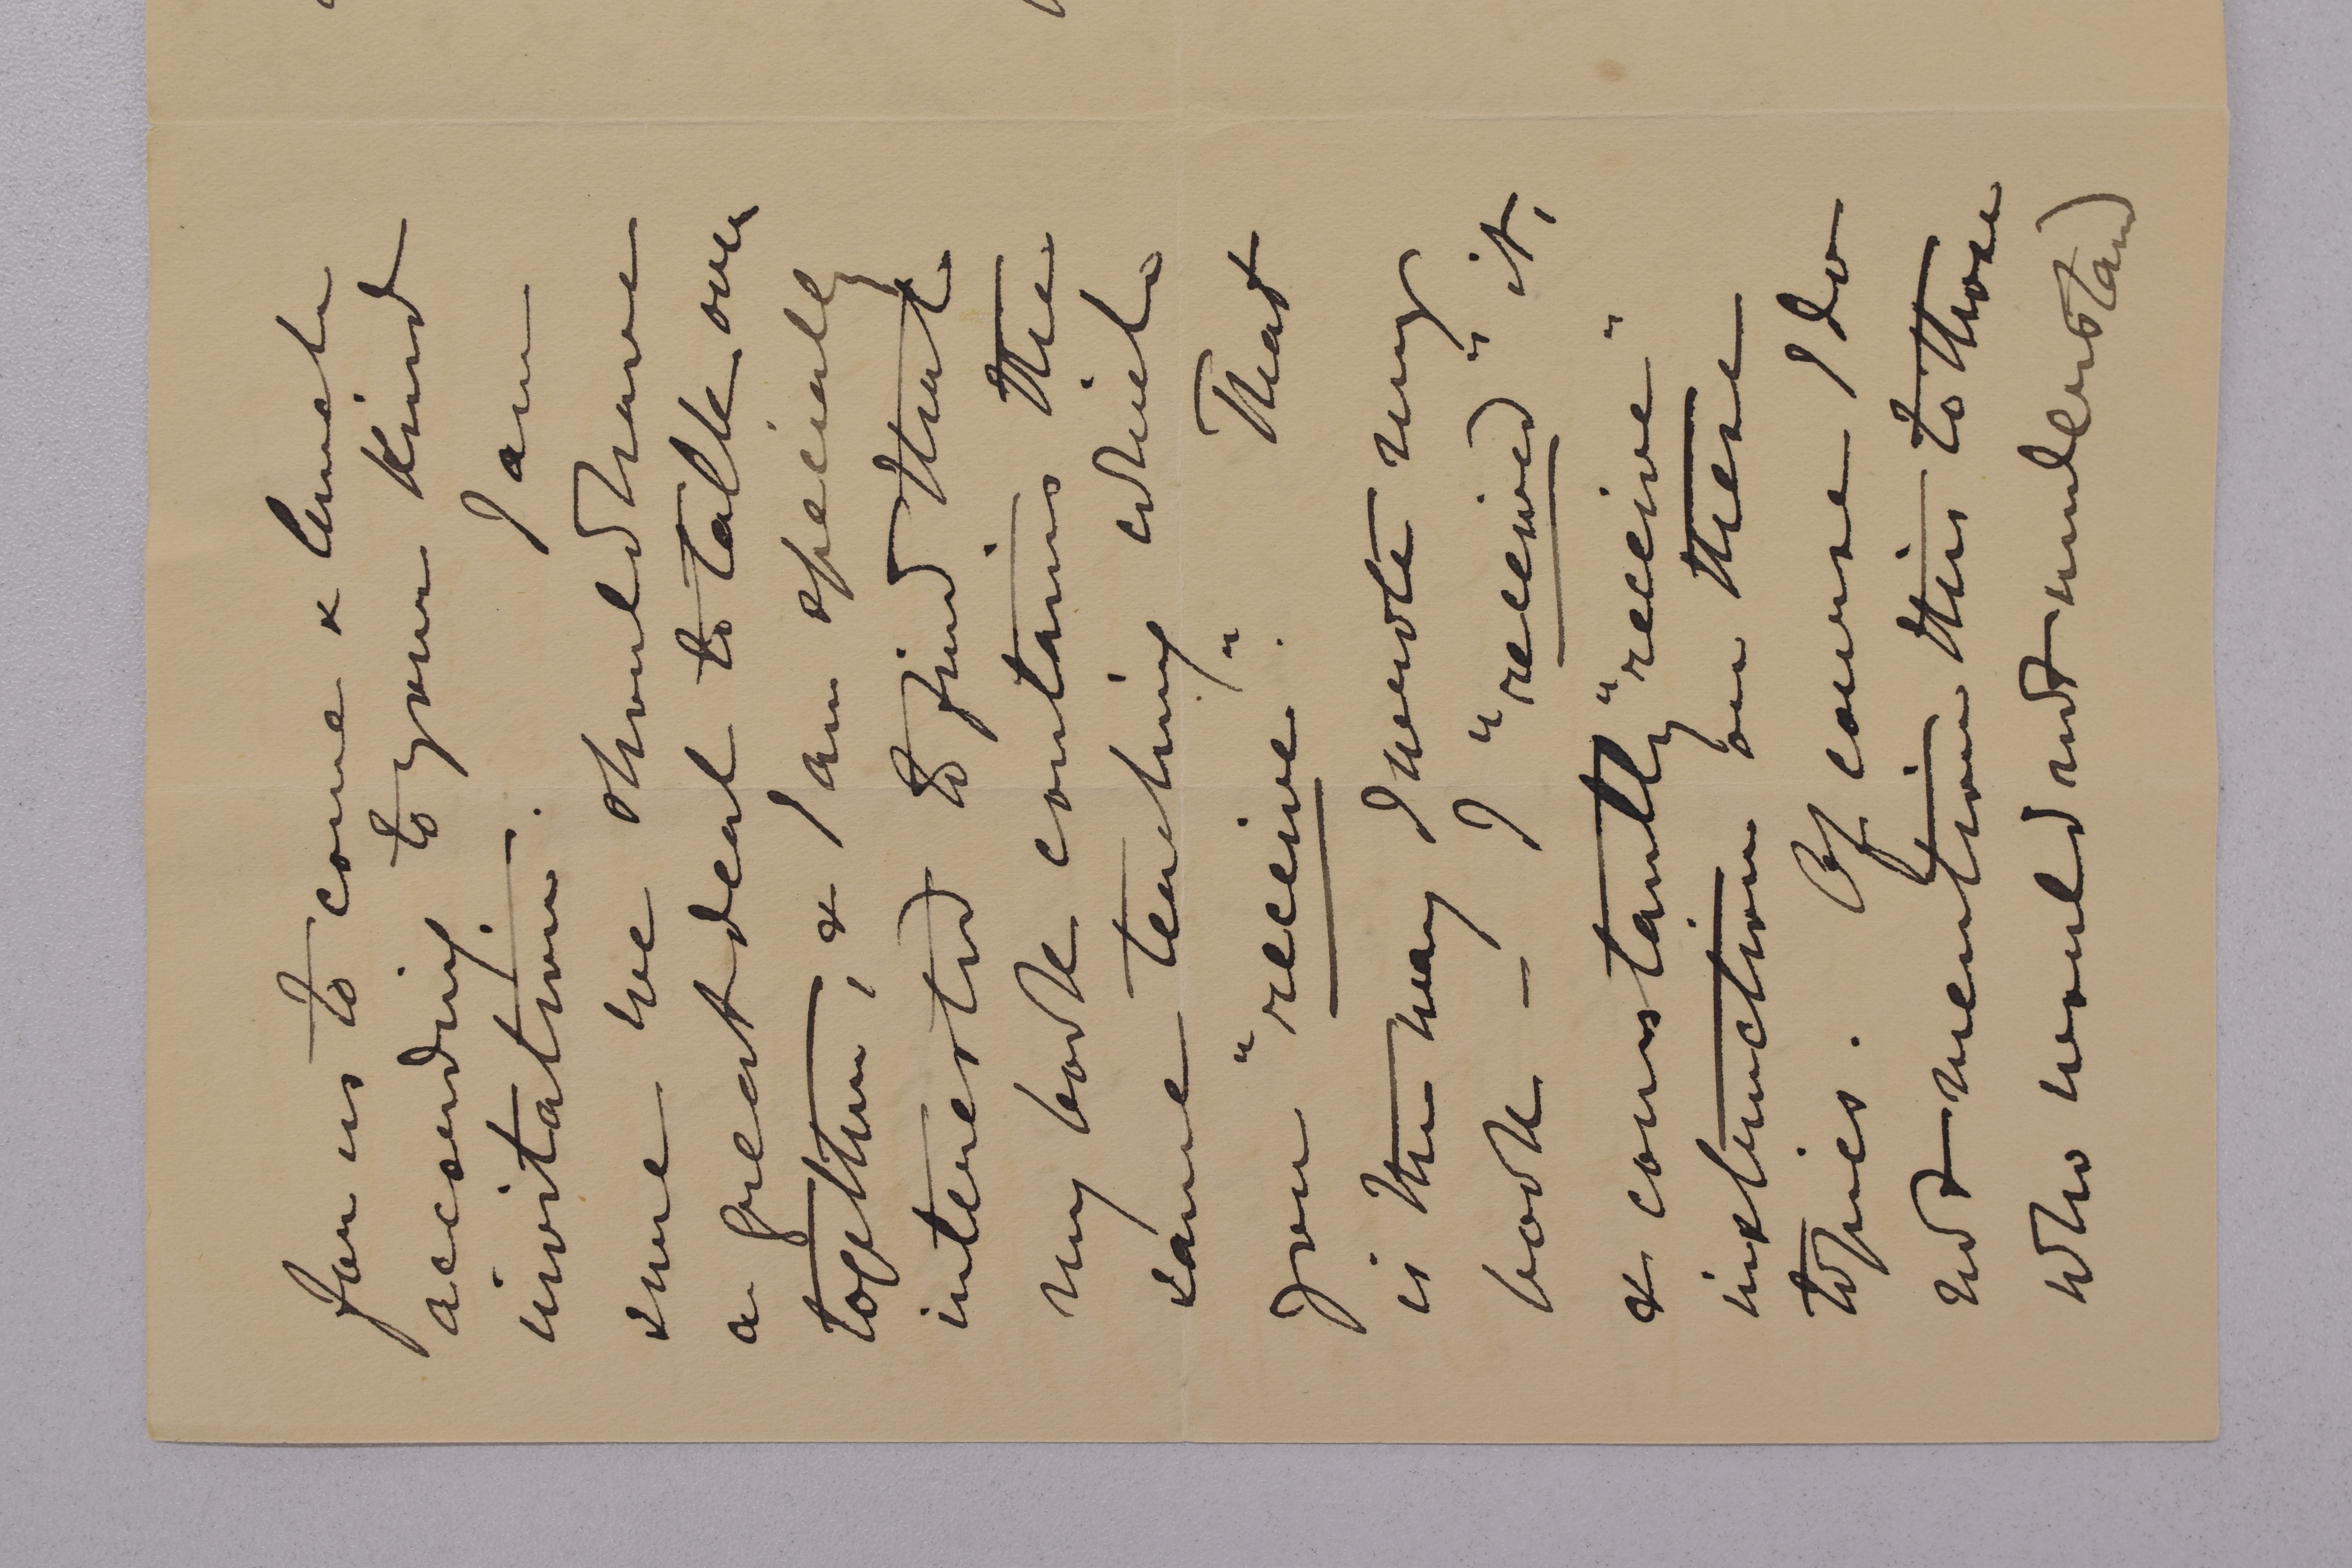 for us to come & lunch
according to your kind
invitation. I am
sure we should have
a great deal to talk over
together, & I am specially
interested to find that
my book contains the
same teaching which
you "receive". That
is the way I wrote my
book – I "received" it,
& constantly "receive"
instruction on these
topics. Of course I do
not mention this to those
who would not understand